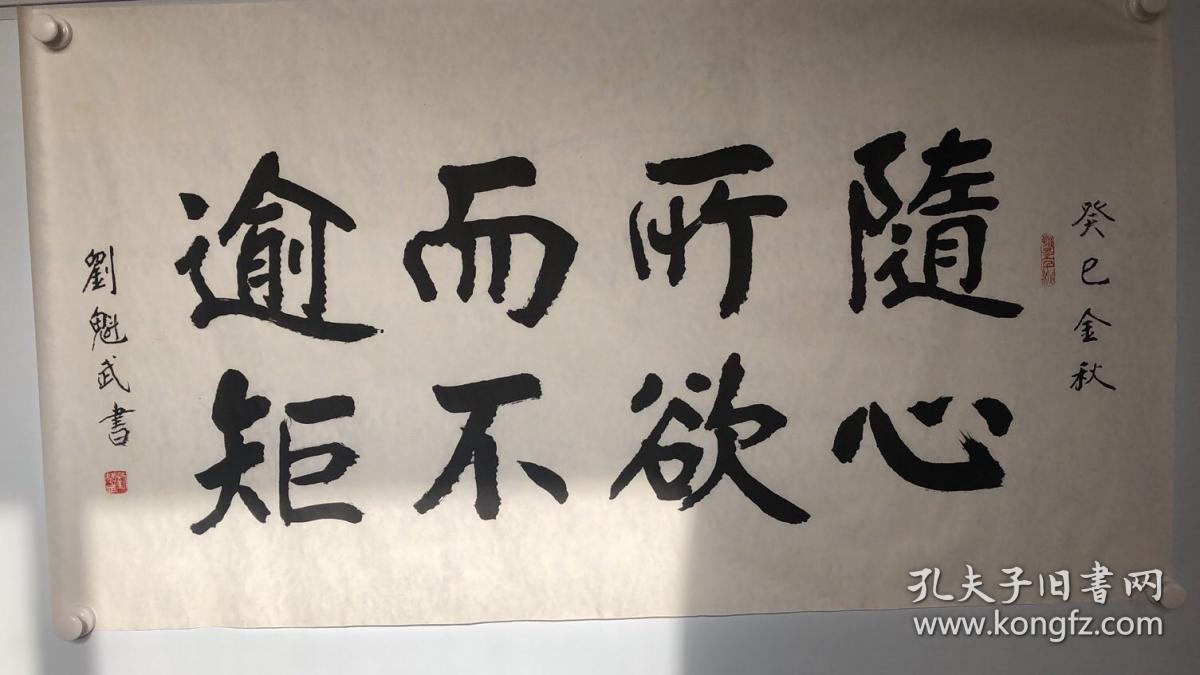 癸巳金秋
隨心
所欲
而不
逾矩
劉魁武書
孔夫子旧書网
www.kongfz.com